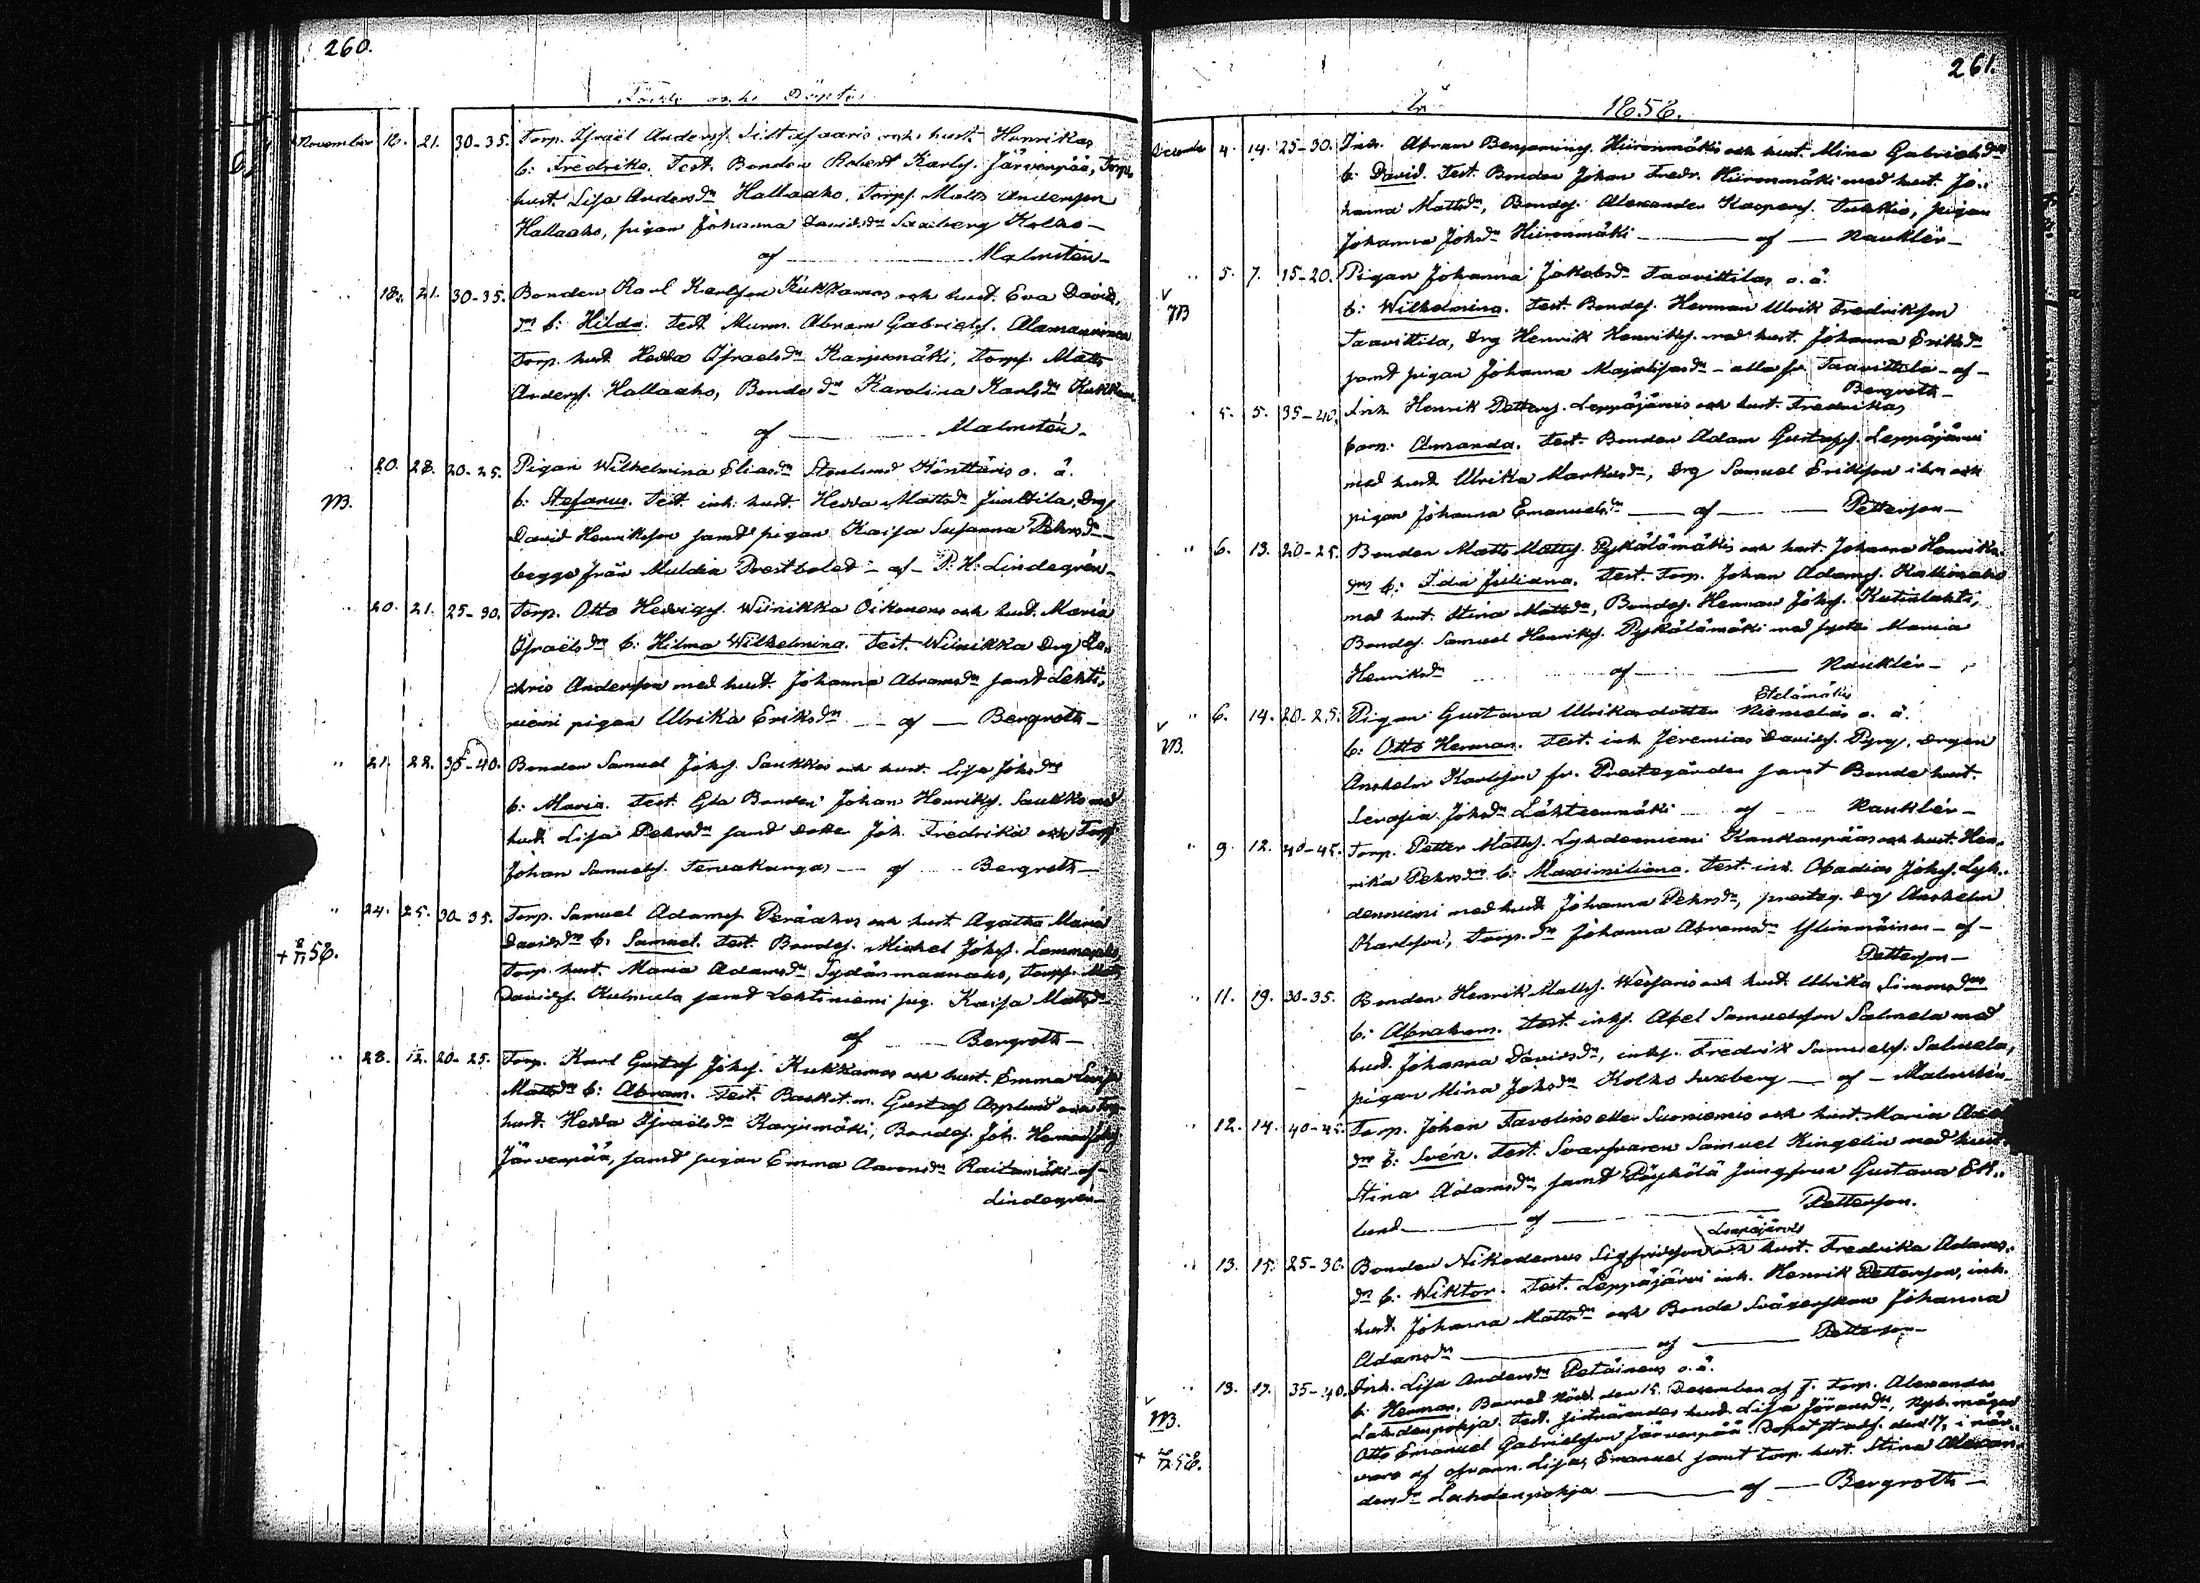 260.
Födde och Döpte
November 12. 21. 30-35. Torp. Israël Anders. och hust. Henrika
b: Fredrika. Test. Bonden Robert Karls. Järvenpää, Torp.
hust. Lisa Andersdr Hallaaho, Torps. Matts Andersson
Hallaaho, pigan Johanna Davidsdr Saxberg Kolho
af Malmstén
" 18. 21. 30-35. Bonden Karl Karlsson Kukkamas och hust. Eva Davids,
dr b: Hilda. Test. Murm. Abram Gabriels. Alamanninen
Torp. hust. Hedda Israelsdr Karjumäki, Torps. Matts
Anders. Hallaaho, Bonde dr Karolina Karlsdr Kukkam
af Malmstén.
" 20. 28. 20-25. Pigan Wilhelmina Eliasdr Stenlund Känttäris o. ä.
VB. b: Stefanus. Test. inh. hust. Hedda Mattsdr Juuttila, Drg
David Henriksson samt pigan Kaisa Susanna Pehrsdr
begge från Muldia Prestbolet - af - P. H. Lindegrén
" 20. 21. 25-30. Torp. Otto Hedvigs. Wiinikka Oikonens och hust. Maria
Israëlsdr b: Hilma Wilhelmina. Test. Wiinikka Drg Za,
chris Andersson med hust. Johanna Abramsdr samt Lehti,
niemi pigan Ulrika Eriksdr af Bergroth
" 21. 22. 35-40. Bonden Samuel Johs. Saukkos och hust. Lisa Johsdr
b: Maria. Test. Gla Bonden Johan Henriks. Saukko med
hust. Lisa Pehrsdr samt Joh. Fredrika och Torps.
Johan Samuels. Tervakangas af Bergroth
" 24. 25. 30-35. Torp. Samuel Adams. Peräahos och hust. Agatha Maria
+ 58. Davidsdr b: Samuel. Test. Bondes. Mickel Johs. Lammenaho,
Torp. hust. Maria Adamsdr Sydänmaanaho, Torps. Matts
Davids. Kulmula samt Lehtiniemi pig. Kaisa Mattsdr
af Bergroth
" 28. 12. 20-25. Torp. Karl Gustaf Johs. Kukkamas och hust. Emma
Mattsdr b: Abram. Test. Gustaf Asplund och Torp
hust. Hedda Israëlsdr Karjumäki, Bondes. Joh. Herman
Järvenpää, samt pigan Emma Aaronsdr Raitamäki af
Lindegrén
261.
År 1858.
December 4. 14. 25-30. Inh. Abram Benjamins. Hiironmäkis och hust. Mina Gabrielsdr
b: David. Test. Bonden Johan Fredr. Hiironmäki med hust. Jo,,
hanna Mattsdr, Bondes. Alexander Kaspers. Tukkia, pigan
Johanna Johsdr Hiironmäki af Nauklér
" 5. 7. 15-20. Pigan Johanna Jakobsdr Taavittilas o. ä.
v VB b: Wilhelmina. Test. Bondes. Herman Ulrik Fredriksson
Taavittila, Drg Henrik Henriks. med hust. Johanna Eriksdr
samt pigan Johanna Majalisasdr - alla fr. Taavittila - af -
Bergroth
" 5. 5. 35-40. Inh. Henrik Petters. Leppäjärvis och hust. Fredrikas
barn: Amanda. Test. Bonden Adam Gustafs. Leppäjärvi
med hust. Ulrika Markusdr, Drg Samuel Eriksson ibm och
pigan Johanna Emanuelsdr af Petterson
" 6. 13. 20-25. Bonden Matts Matts. Pykälämäkis och hust. Johanna Henriks,
dr b: Ida Juliana. Test. Torp. Johan Adams. Kallioaho
med hust. Stina Mattsdr, Bondes. Herman Johs. Kutialahti,
Bondes. Samuel Henriks. Pykälämäki med syster Maria
Henriksdr af Nauklér
Etelämäkis
" 6. 14. 20-25. Pigan Gustava Ulrikasdotter Niemeläs o. ä.
v VB. b: Otto Herman. Test. inh. Jeremias Davids. Pyry, drgen
Anshelm Karlsson fr. Prestegården samt Bonde hust.
Serafia Johsdr Lähteenmäki af Nauklér
" 9. 12. 40-45. Torp. Petter Matts. Lyhdenniemi Kankaanpääs och hust. Hen,
rika Pehrsdr b: Maximiliana. Test. inh. Abadias Johs. Lyh,,
denniemi med hust. Johanna Pehrsdr, prestag. drg Anshelm
Karlsson, Torp. dr Johanna Abramsdr Ylinenäinen - af -
Petterson
" 11. 19. 30-35. Bonden Henrik Matts. Wessaris och hust. Ulrika Simonsdr
b: Abraham. Test. inhs. Abel Samuelsson Salmela med
hust. Johanna Davidsdr, inhs. Fredrik Samuels. Salmela,
pigan Mina Johsdr Kolho Saxberg af Malmstén
" 12. 14. 40-45. Torp. Johan Favolins eller Suoniemis och hust. Maria Abra
dr b: Svén. Test. Svarfvaren Samuel Kingelin med hust.
Stina Adamsdr, samt Pöykölä Jungfrun Gustava Ek,,
lund af Petterson.
Leppäjärvis
" 13. 15. 25-30. Bonden Nikodemus Sigfridsson och hust. Fredrika Adams,,
dr b: Wiktor. Test. Leppäjärvi inh. Henrik Petterson, inh.
hust. Johanna Mattsdr och Bonde Svägerskan Johanna
Adamsdr af Petterson
" 13. 17. 35-40. Inh. Lisa Andersdr Petäinens o. ä.
v VB. b: Herman. Barnet nöddöpt den 15 December af f. Torp. Alexander
Lahdenpohja. Test. hust. Lisa Göransdr, Nyb. mågen
+ 58. Otto Emanuel Gabrielsson Järvenpää. Dopet den 17, i när,,
varo af ofvann. Lisa, Emanuel samt torp. hust. Stina Alexan,
dersdr Lahdenpohja af Bergroth